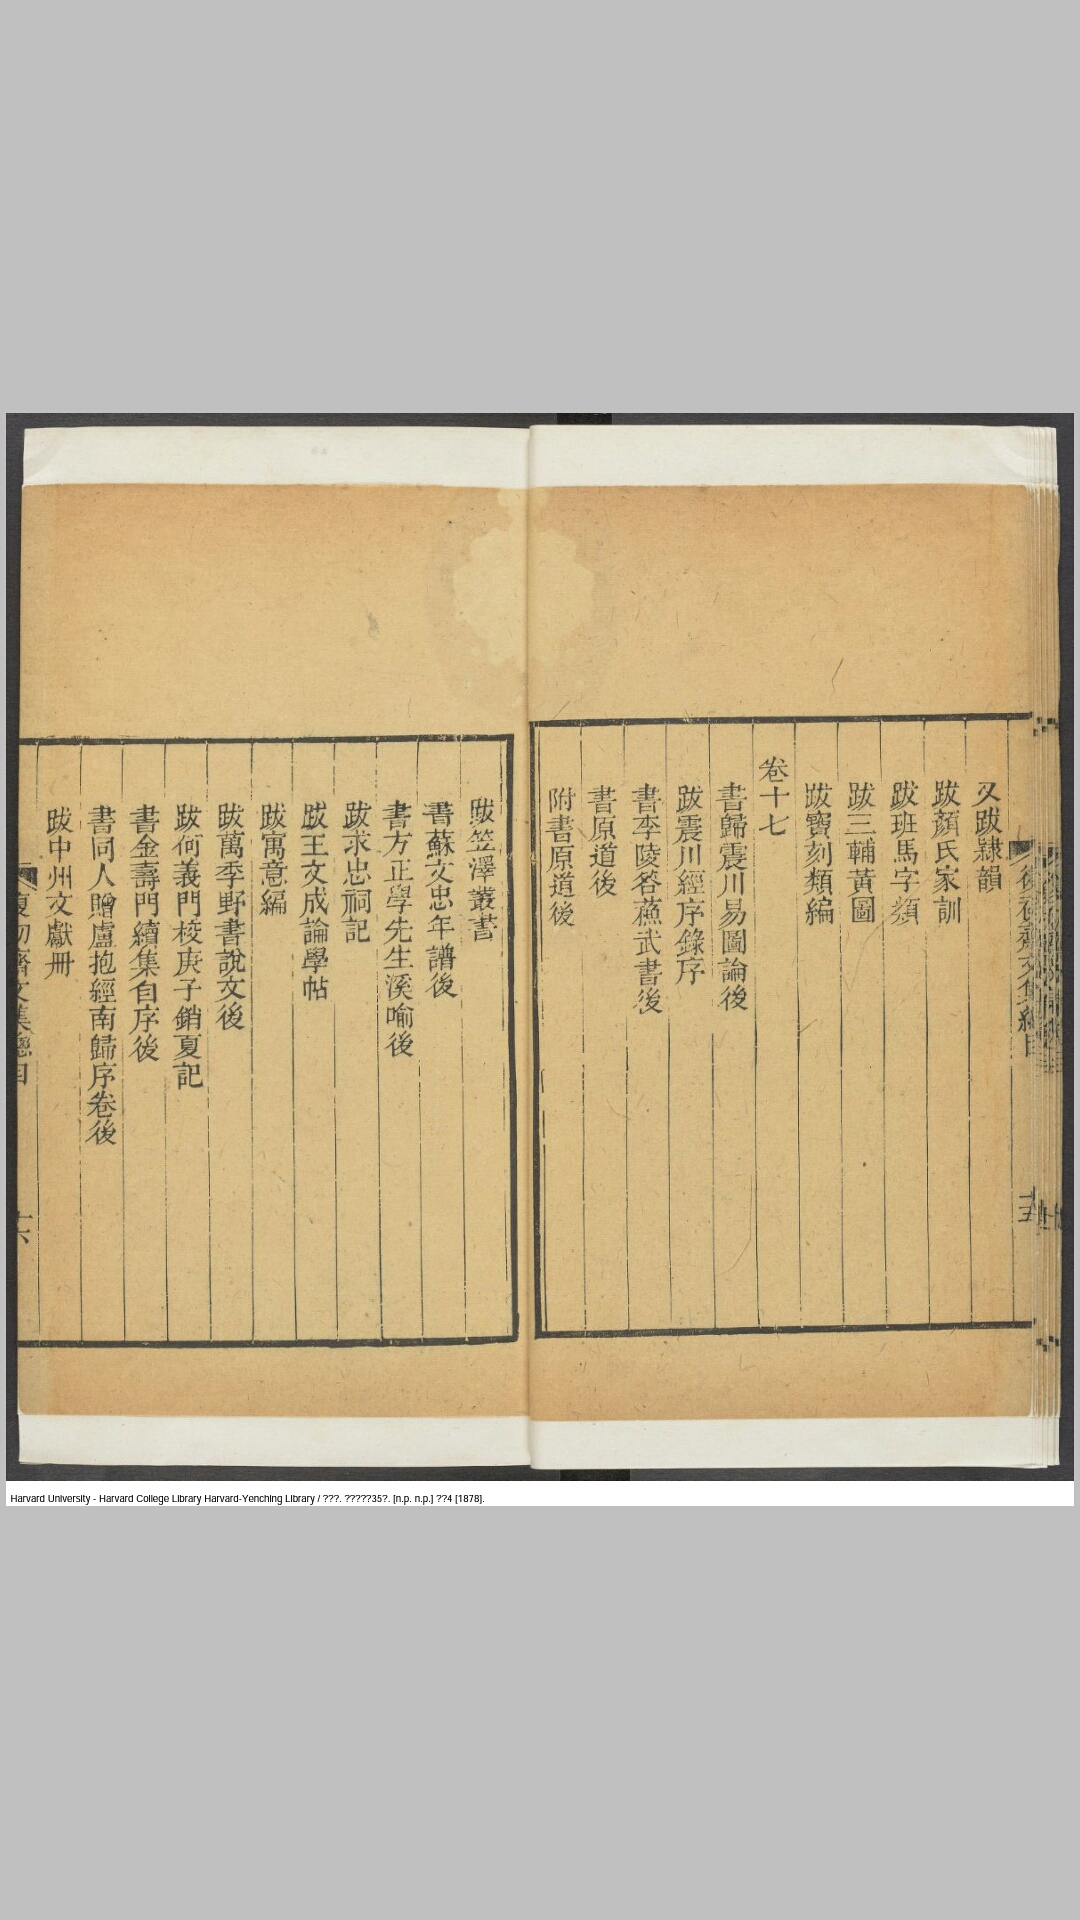 又跋隸韻
跋顏氏家訓
跋班馬字類
跋三輔黃圖
跋寶刻類編
卷十七
書歸震川易圖論後
跋震川經序錄序
書李陵答蘓武書後
書原道後
附書原道後
跋笠澤叢書
書蘇文忠年譜後
書方正學先生溪喻後
跋求忠祠記
跋王文成論學帖
跋寓意編
跋萬季野書說文後
跋何義門校庚子銷夏記
書金壽門續集自序後
書同人贈盧抱經南歸序卷後
跋中州文獻冊
Harvard University - Harvard College Library Harvard-Yenching Library / ???. ?????35?. [n.p. n.p.] ??4 [1878].